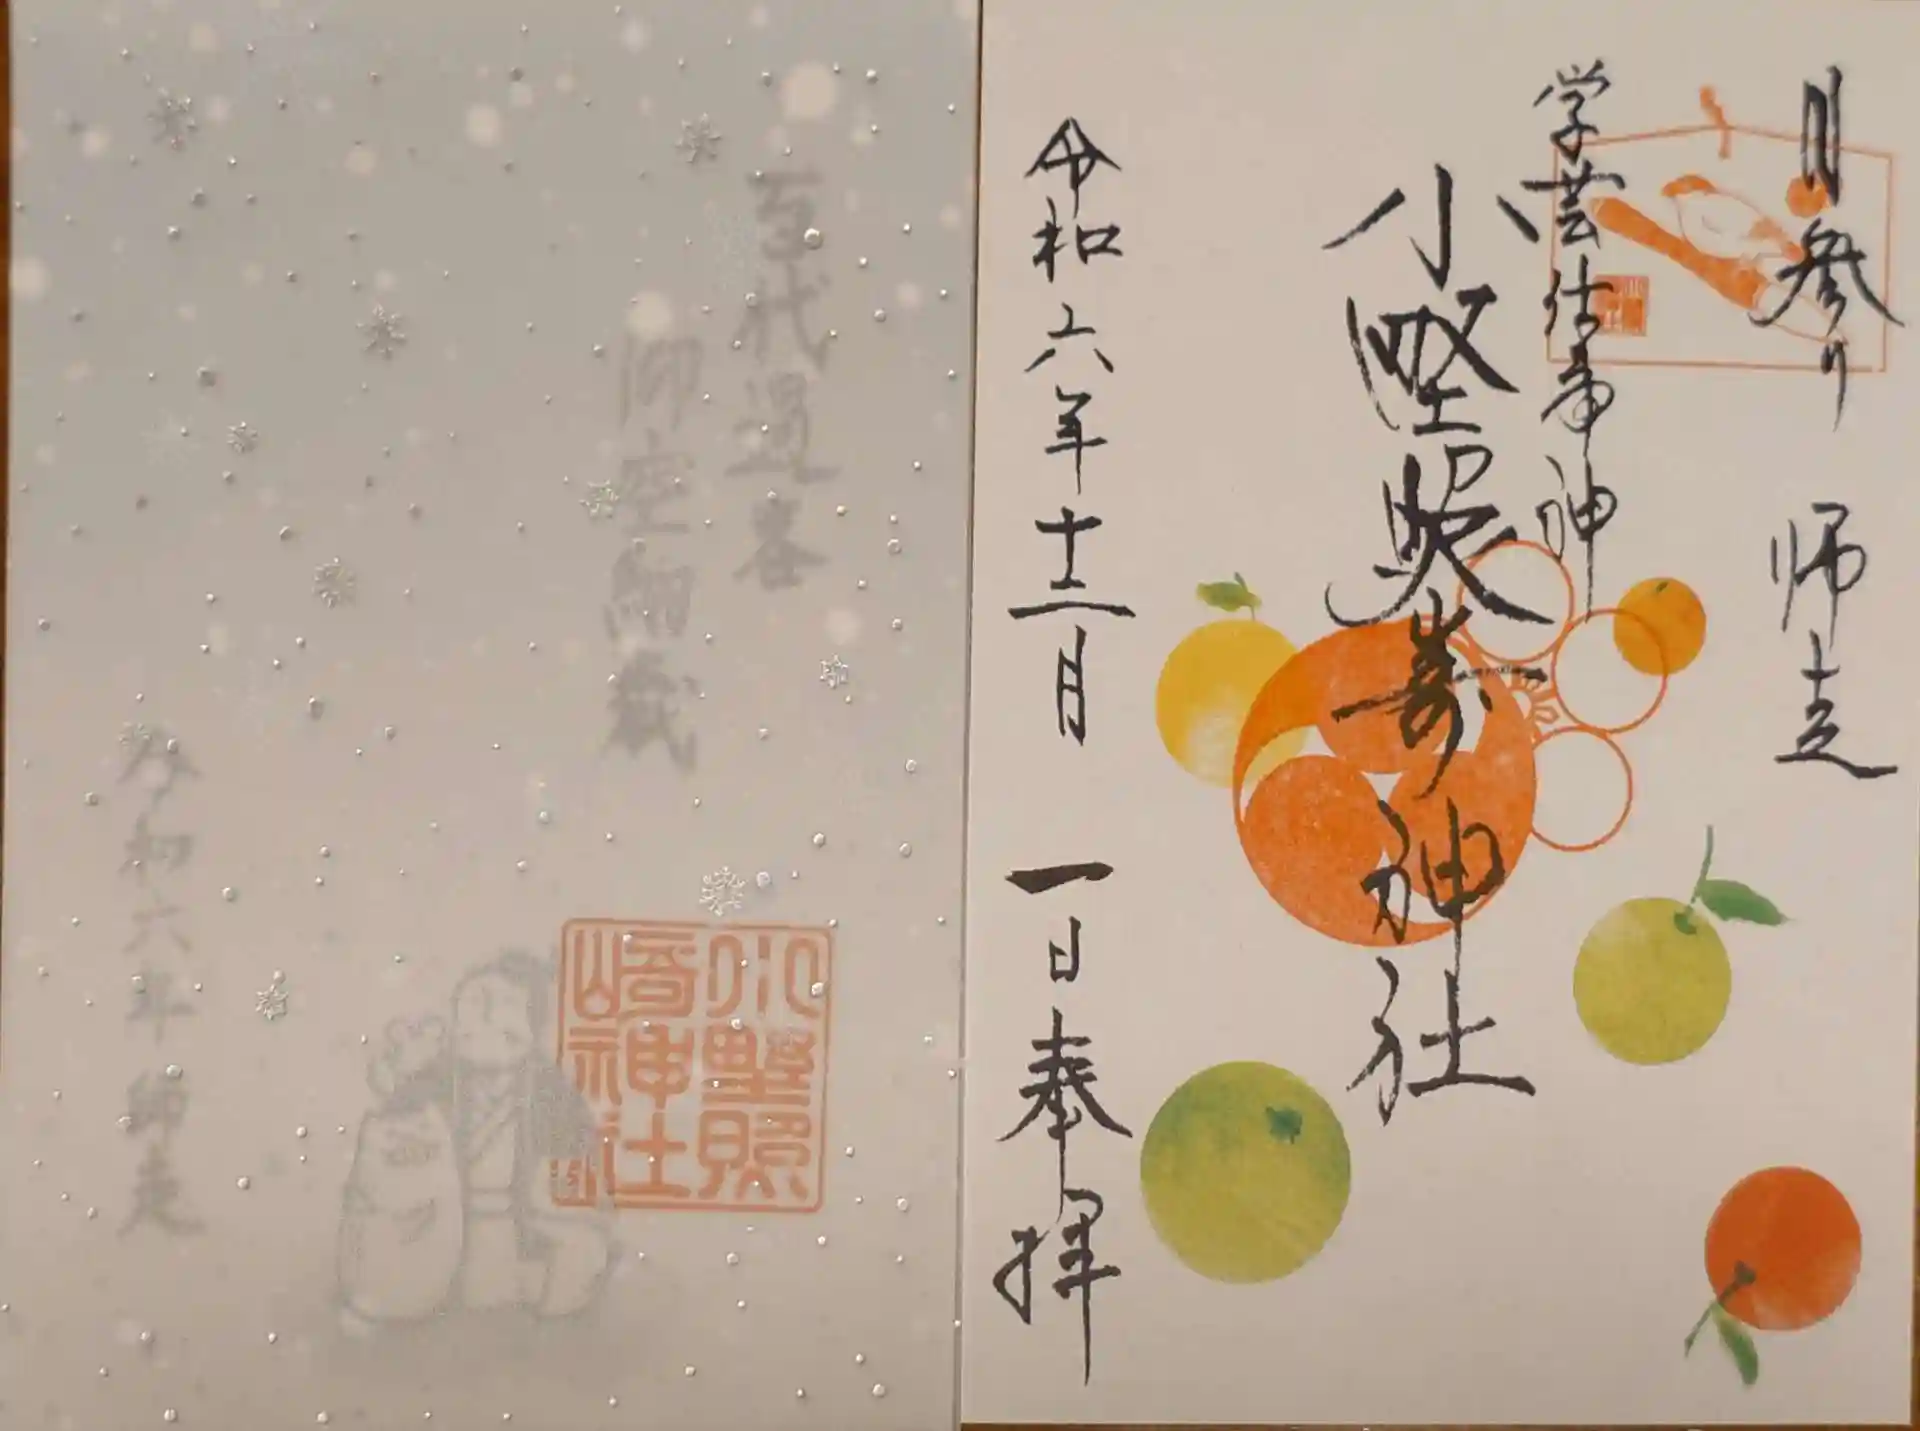 月参り 師走
学芸仕事神
小野照崎神社
令和六年十二月 一日奉拝
百代過客
小野照
崎神社
令和六年 師走